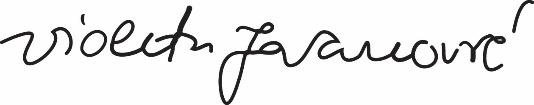 Violeta Jovanović